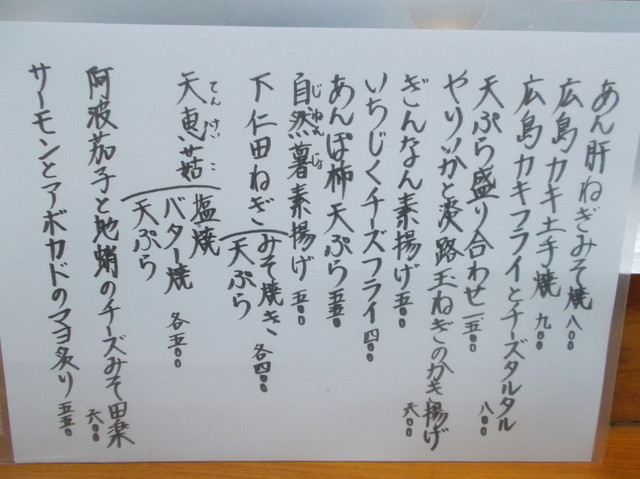 あん肝ねぎみそ焼 八〇〇
広島カキ土手焼 九〇〇
広島カキフライとチーズタルタル 八〇〇
天ぷら盛り合わせ 一五〇〇
やりいかと淡路玉ねぎのかき揚げ 六〇〇
ぎんなん素揚げ 五〇〇
いちじくチーズフライ 四〇〇
あんぽ柿天ぷら 五五〇
自然薯素揚げ 五〇〇
じねんじょ
下仁田ねぎ みそ焼き 天ぷら 各四〇〇
天恵菇 塩焼 バター焼 天ぷら 各五〇〇
てんけいこ
阿波茄子と地蛸のチーズみそ田楽 六〇〇
サーモンとアボカドのマヨ炙り 五五〇